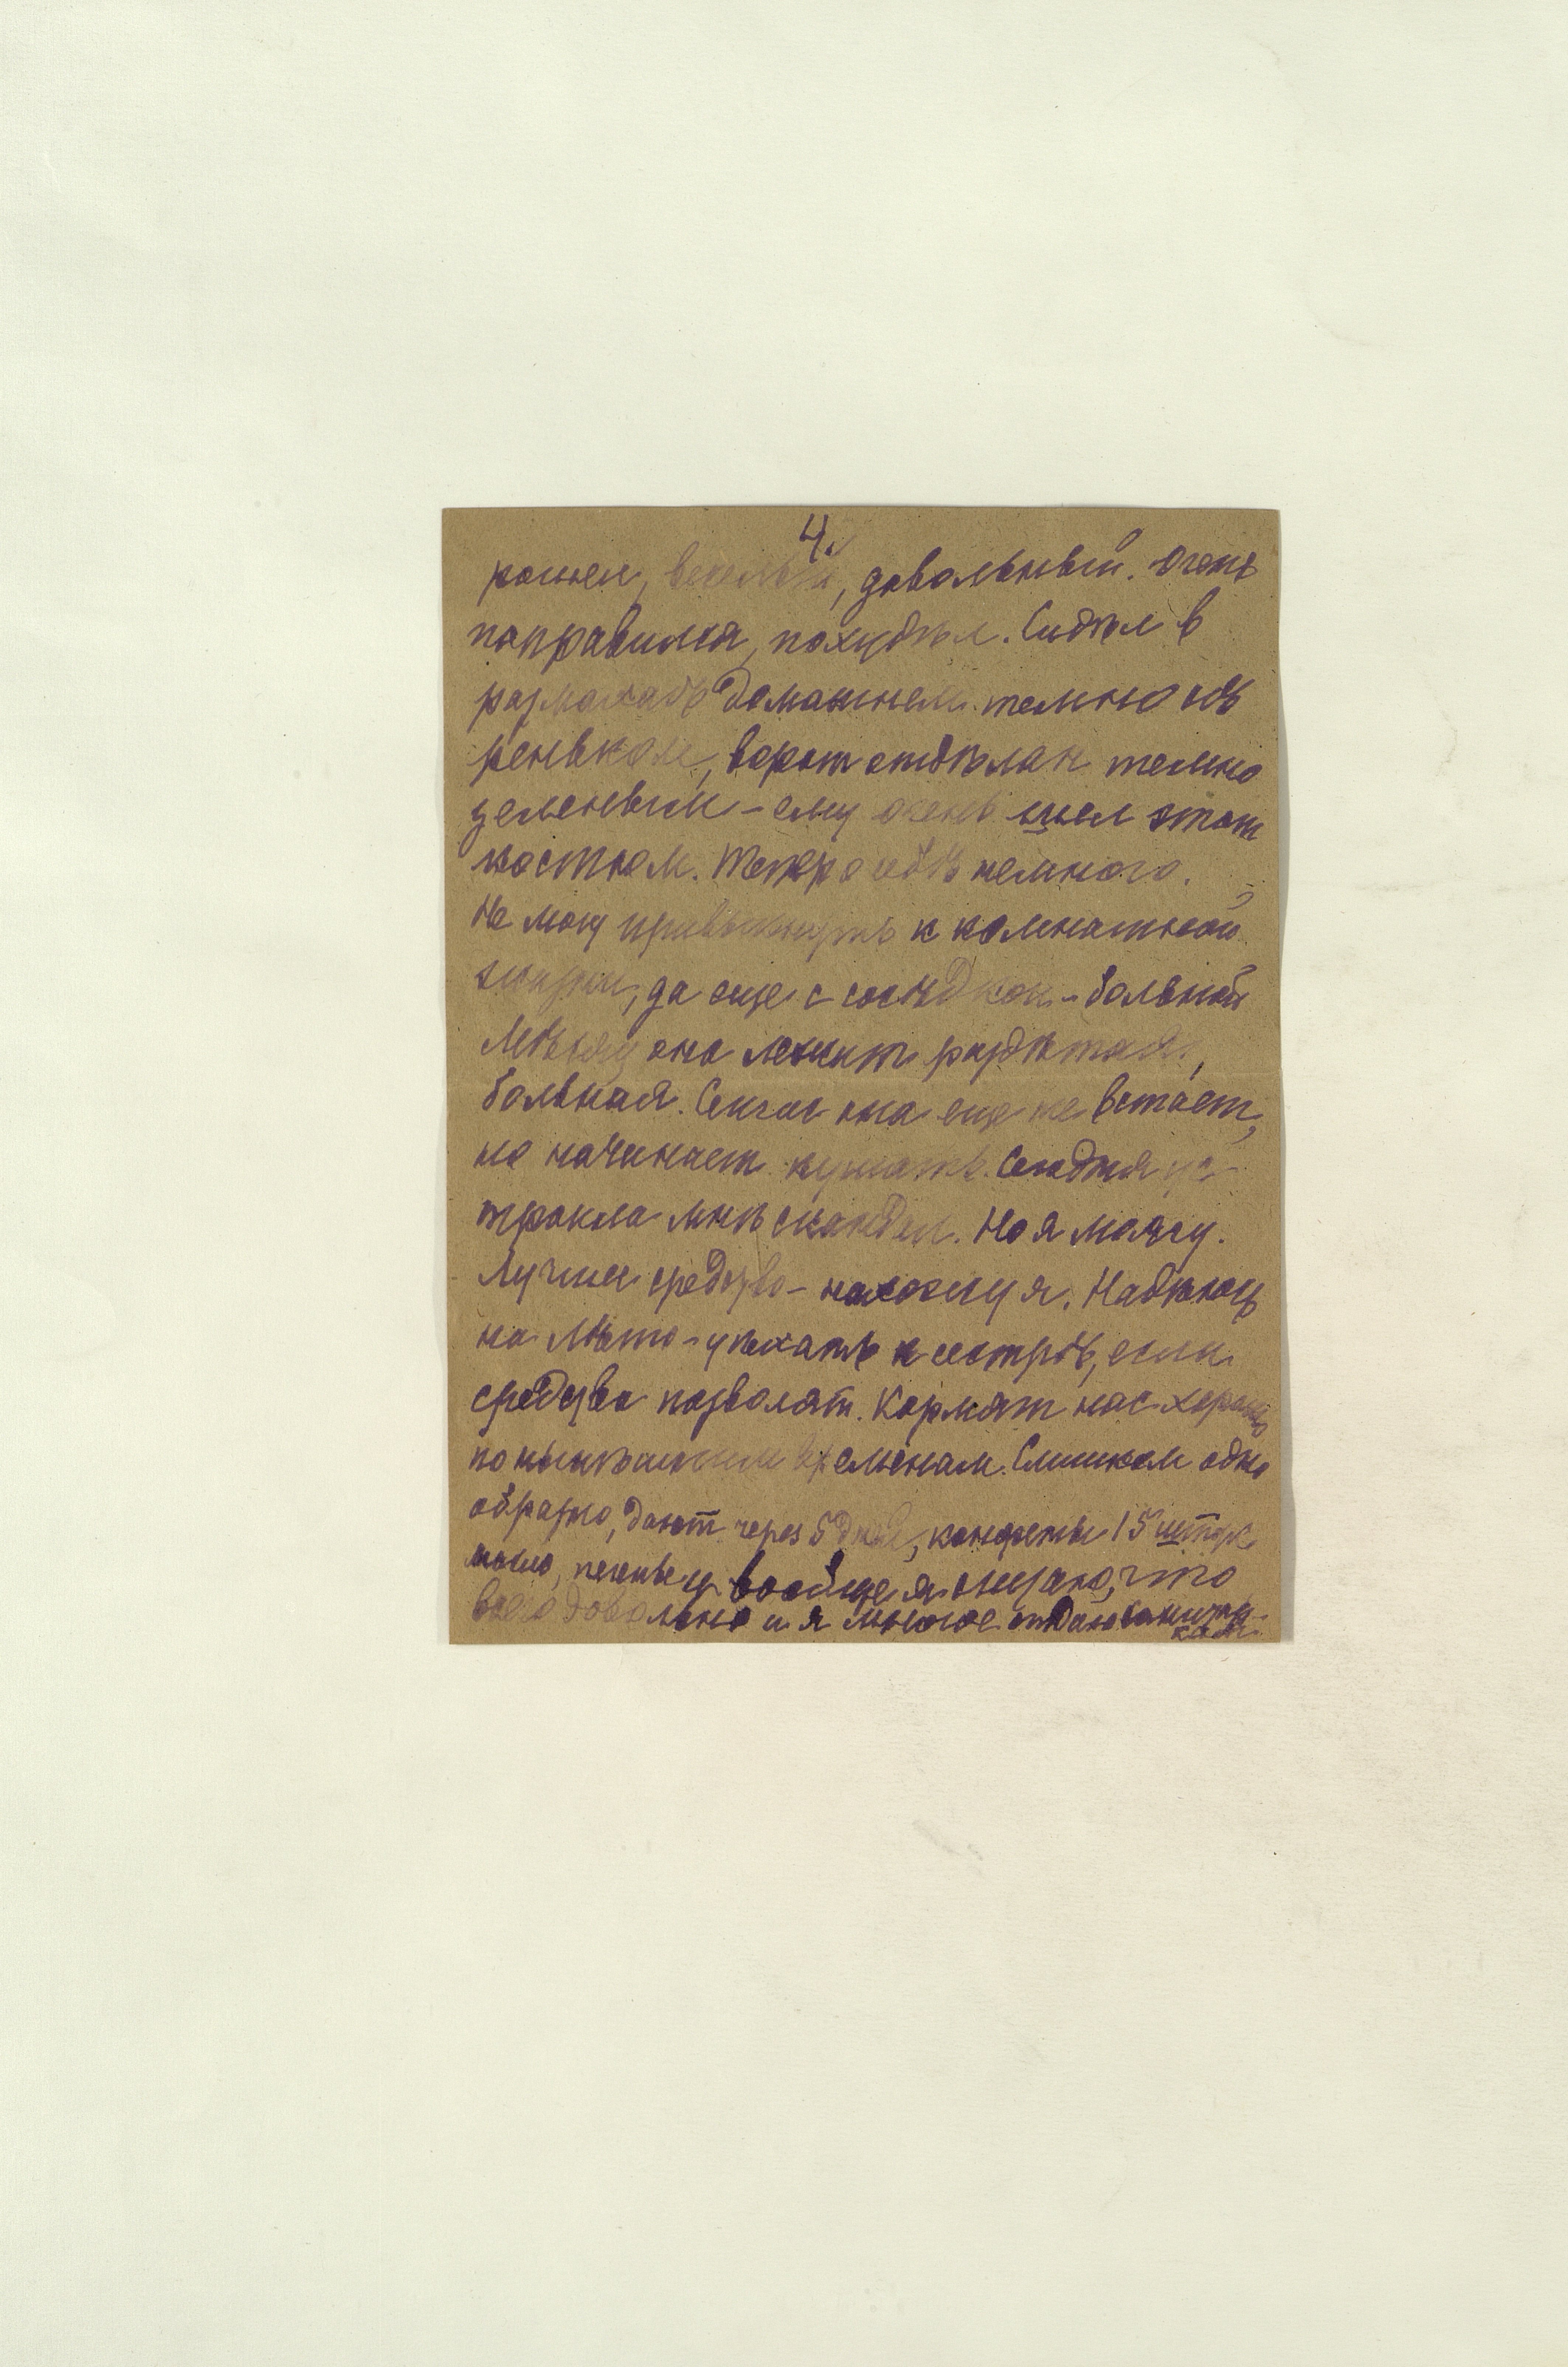 4.
рошел, веселый, довольный. Очень
поправился, похудѣл. Сидѣл в
домашнем темно сѣ
реньком, ворот отдѣлан темно
зеленым – ему очень шел этот
костюм. Теперо о себѣ немного.
Не могу привыкнуть к комнатной
жизни, да еще с сосѣдкой – больной
Мѣсяц она лежит раздѣтая,
больная. Сейчас она еще не встает,
но начинает кушать. Сегодня за-
тракла мнѣ скандал. Но я молчу.
Лучшее средство – нахожу я. Надѣюсь
на лѣто – уѣхать к сестрѣ, если
средства позволят. Кормят нас хорошо
по нынѣшним временам. Слишком одно
образно, дают через 5 дней, конфеты 15 штук
масло, печенье и вообще я считаю, что
всего довольно и я многое отдаю